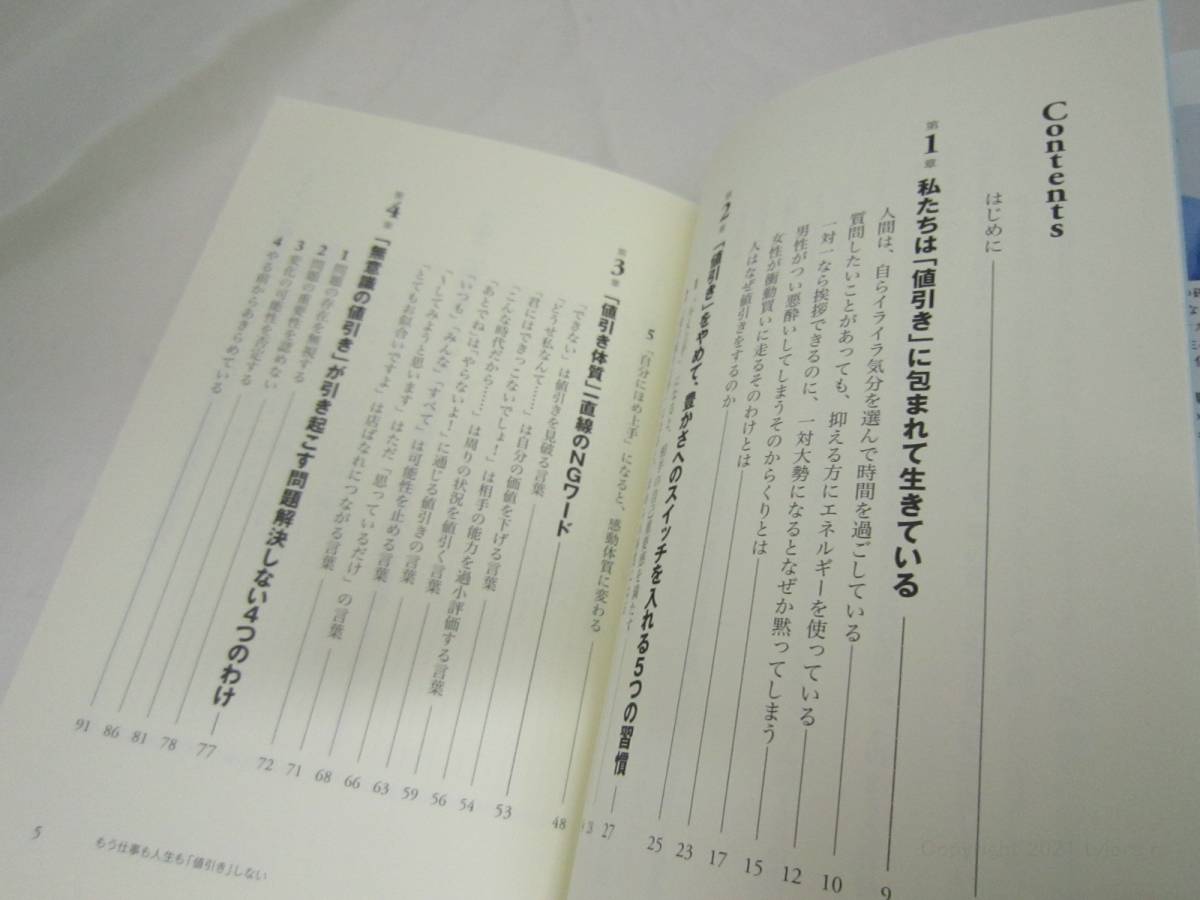 Contents
はじめに
第1章 私たちは「値引き」に包まれて生きている 9
人間は、自らイライラ気分を選んで時間を過ごしている 10
質問したいことがあっても、抑える方にエネルギーを使っている 12
一対一なら挨拶できるのに、一対大勢になるとなぜか黙ってしまう 15
男性がつい悪酔いしてしまうそのからくりとは 17
女性が衝動買いに走るそのわけとは 23
人はなぜ値引きをするのか 25
第2章 「値引き」をやめて、豊かさへのスイッチを入れる5つの習慣 27
5 「自分にほめ上手」になると、感動体質に変わる 48
第3章 「値引き体質」一直線のNGワード 53
「できない」は値引きを見破る言葉 54
「どうせ私なんて……」は自分の価値を下げる言葉 56
「君にはできっこないでしょ!」は相手の能力を過小評価する言葉 59
「こんな時代だから……」は周りの状況を値引く言葉 63
「あとでね」は「やらないよ!」に通じる値引きの言葉 66
「いつも」「みんな」「すべて」は可能性を止める言葉 68
「〜してみようと思います」はただ「思っているだけ」の言葉 71
「とてもお似合いですよ」は店ばなれにつながる言葉 72
第4章 「無意識の値引き」が引き起こす問題解決しない4つのわけ 77
1 問題の存在を無視する 78
2 問題の重要性を認めない 81
3 変化の可能性を否定する 86
4 やる前からあきらめている 91
5 もう仕事も人生も「値引き」しない